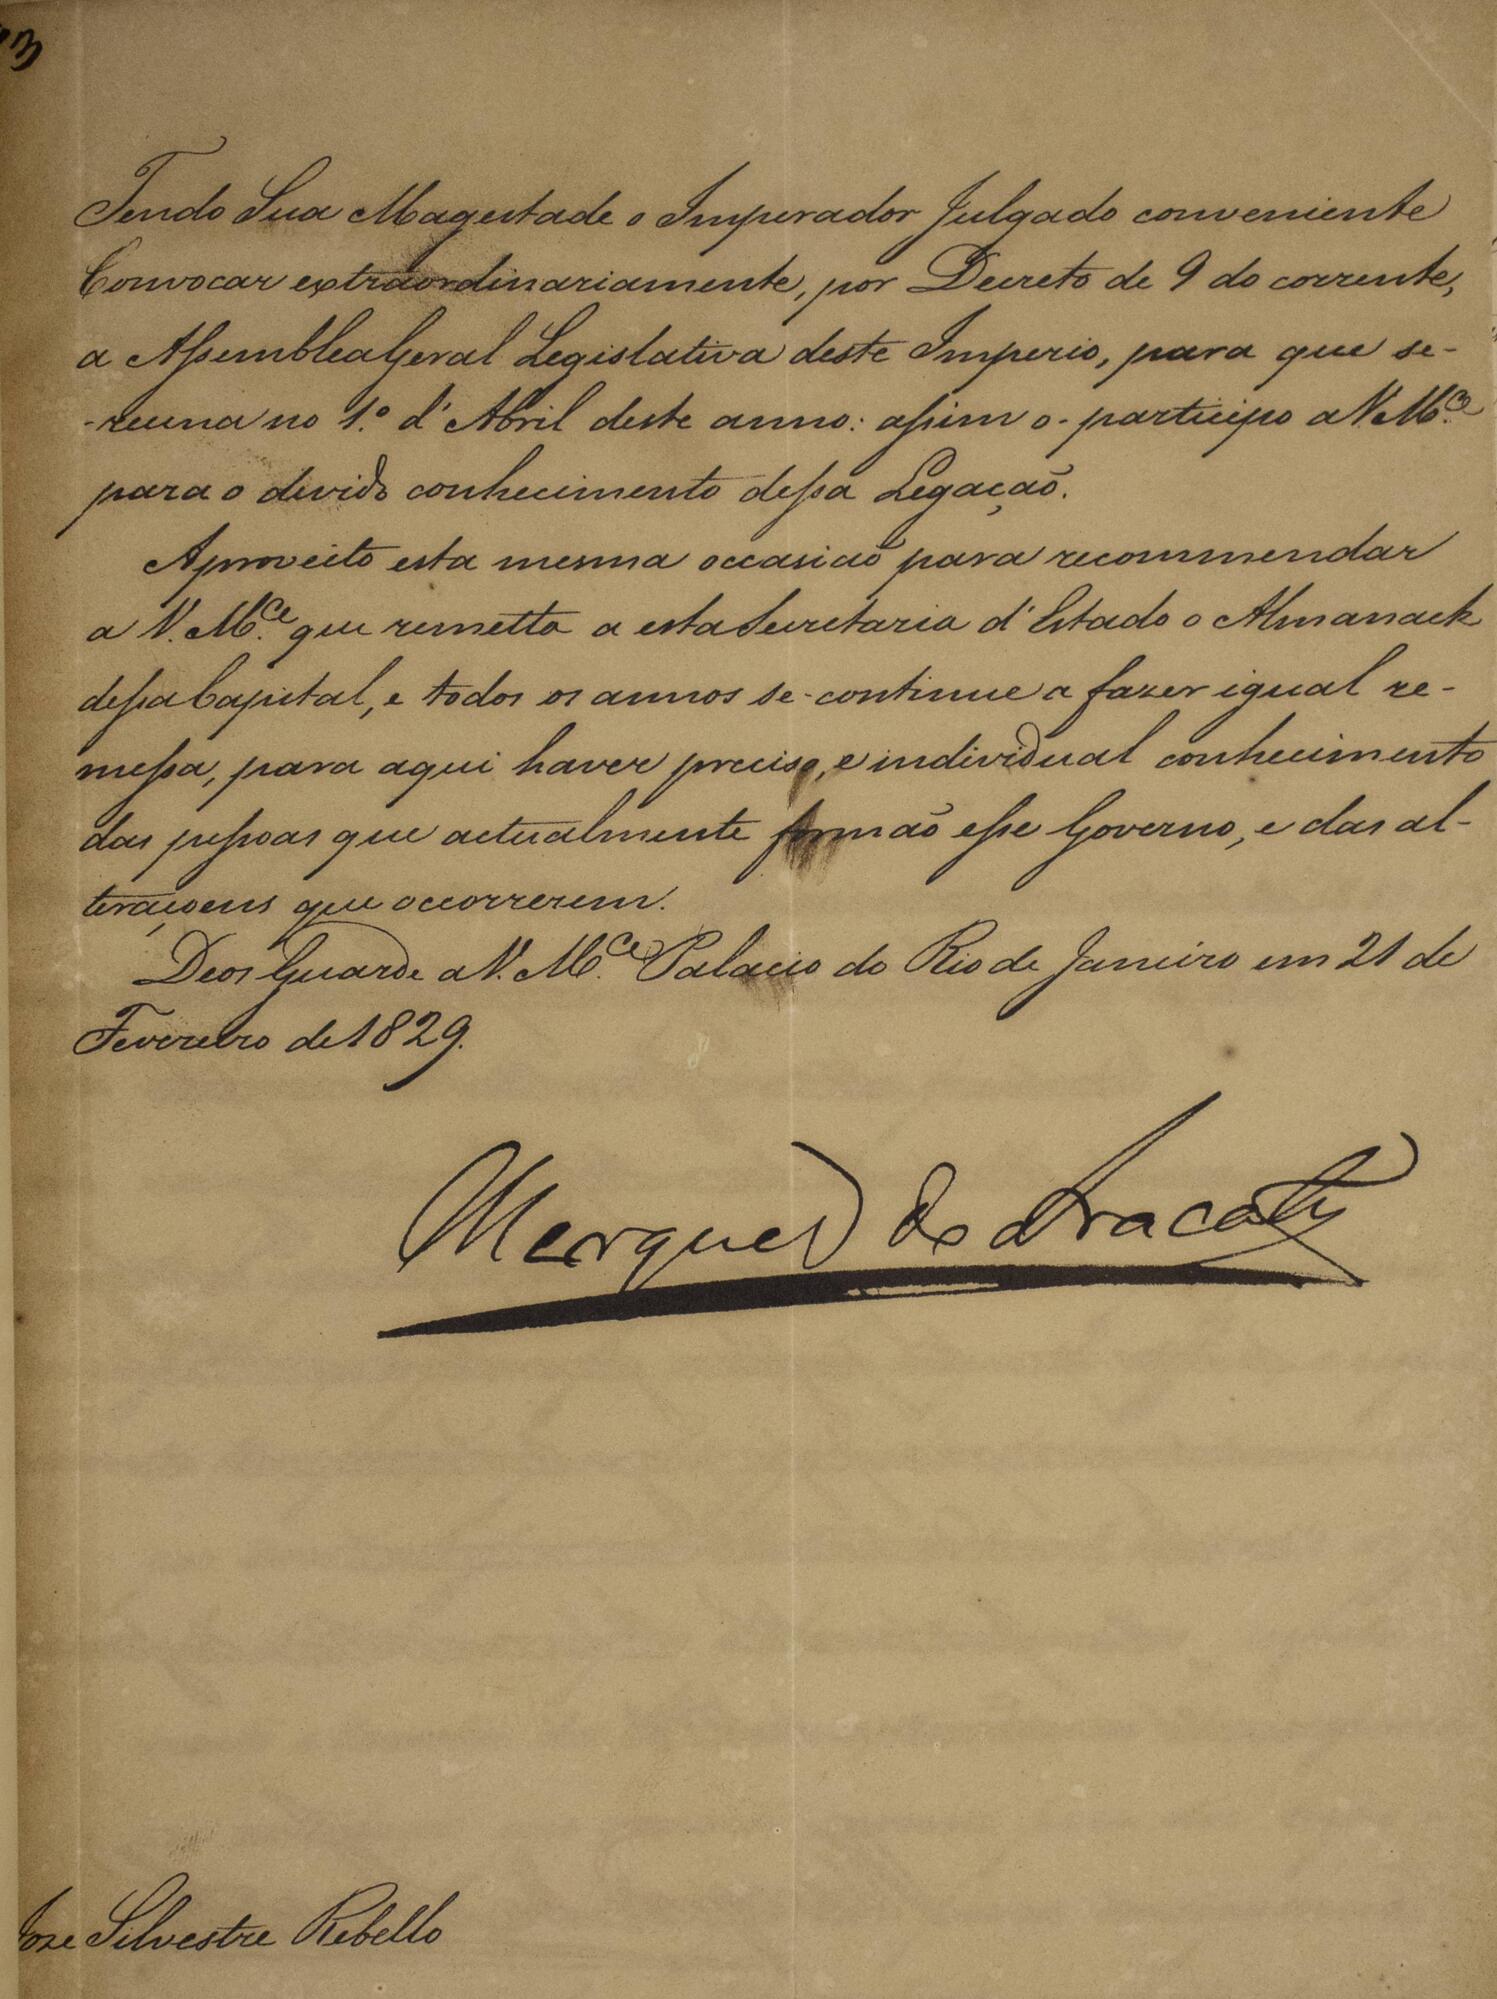 3
Tendo Sua Magestade o Imperador Julgado conveniente
Convocar extraordinariamente, por Decreto de 9 do corrente,
a Assemblea Geral Legislativa deste Imperio, para que se-
-reuna no 1.º d'Abril deste anno: assim o-participo a V. M.ce
para o devido conhecimento dessa Legação.
Aproveito esta mesma occasião para recommendar
a V. M.ce que remetta a esta Secretaria d'Estado o Almanack
dessa Capital, e todos os annos se-continue a fazer igual re-
messa, para aqui haver preciso, e individual conhecimento
das pessoas que actualmente formão esse Governo, e das al-
teraçoens que occorrerem.
Deos Guarde a V. M.ce Palacio do Rio de Janeiro em 21 de
Fevereiro de 1829.
Marquez de Aracaty
Joze Silvestre Rebello